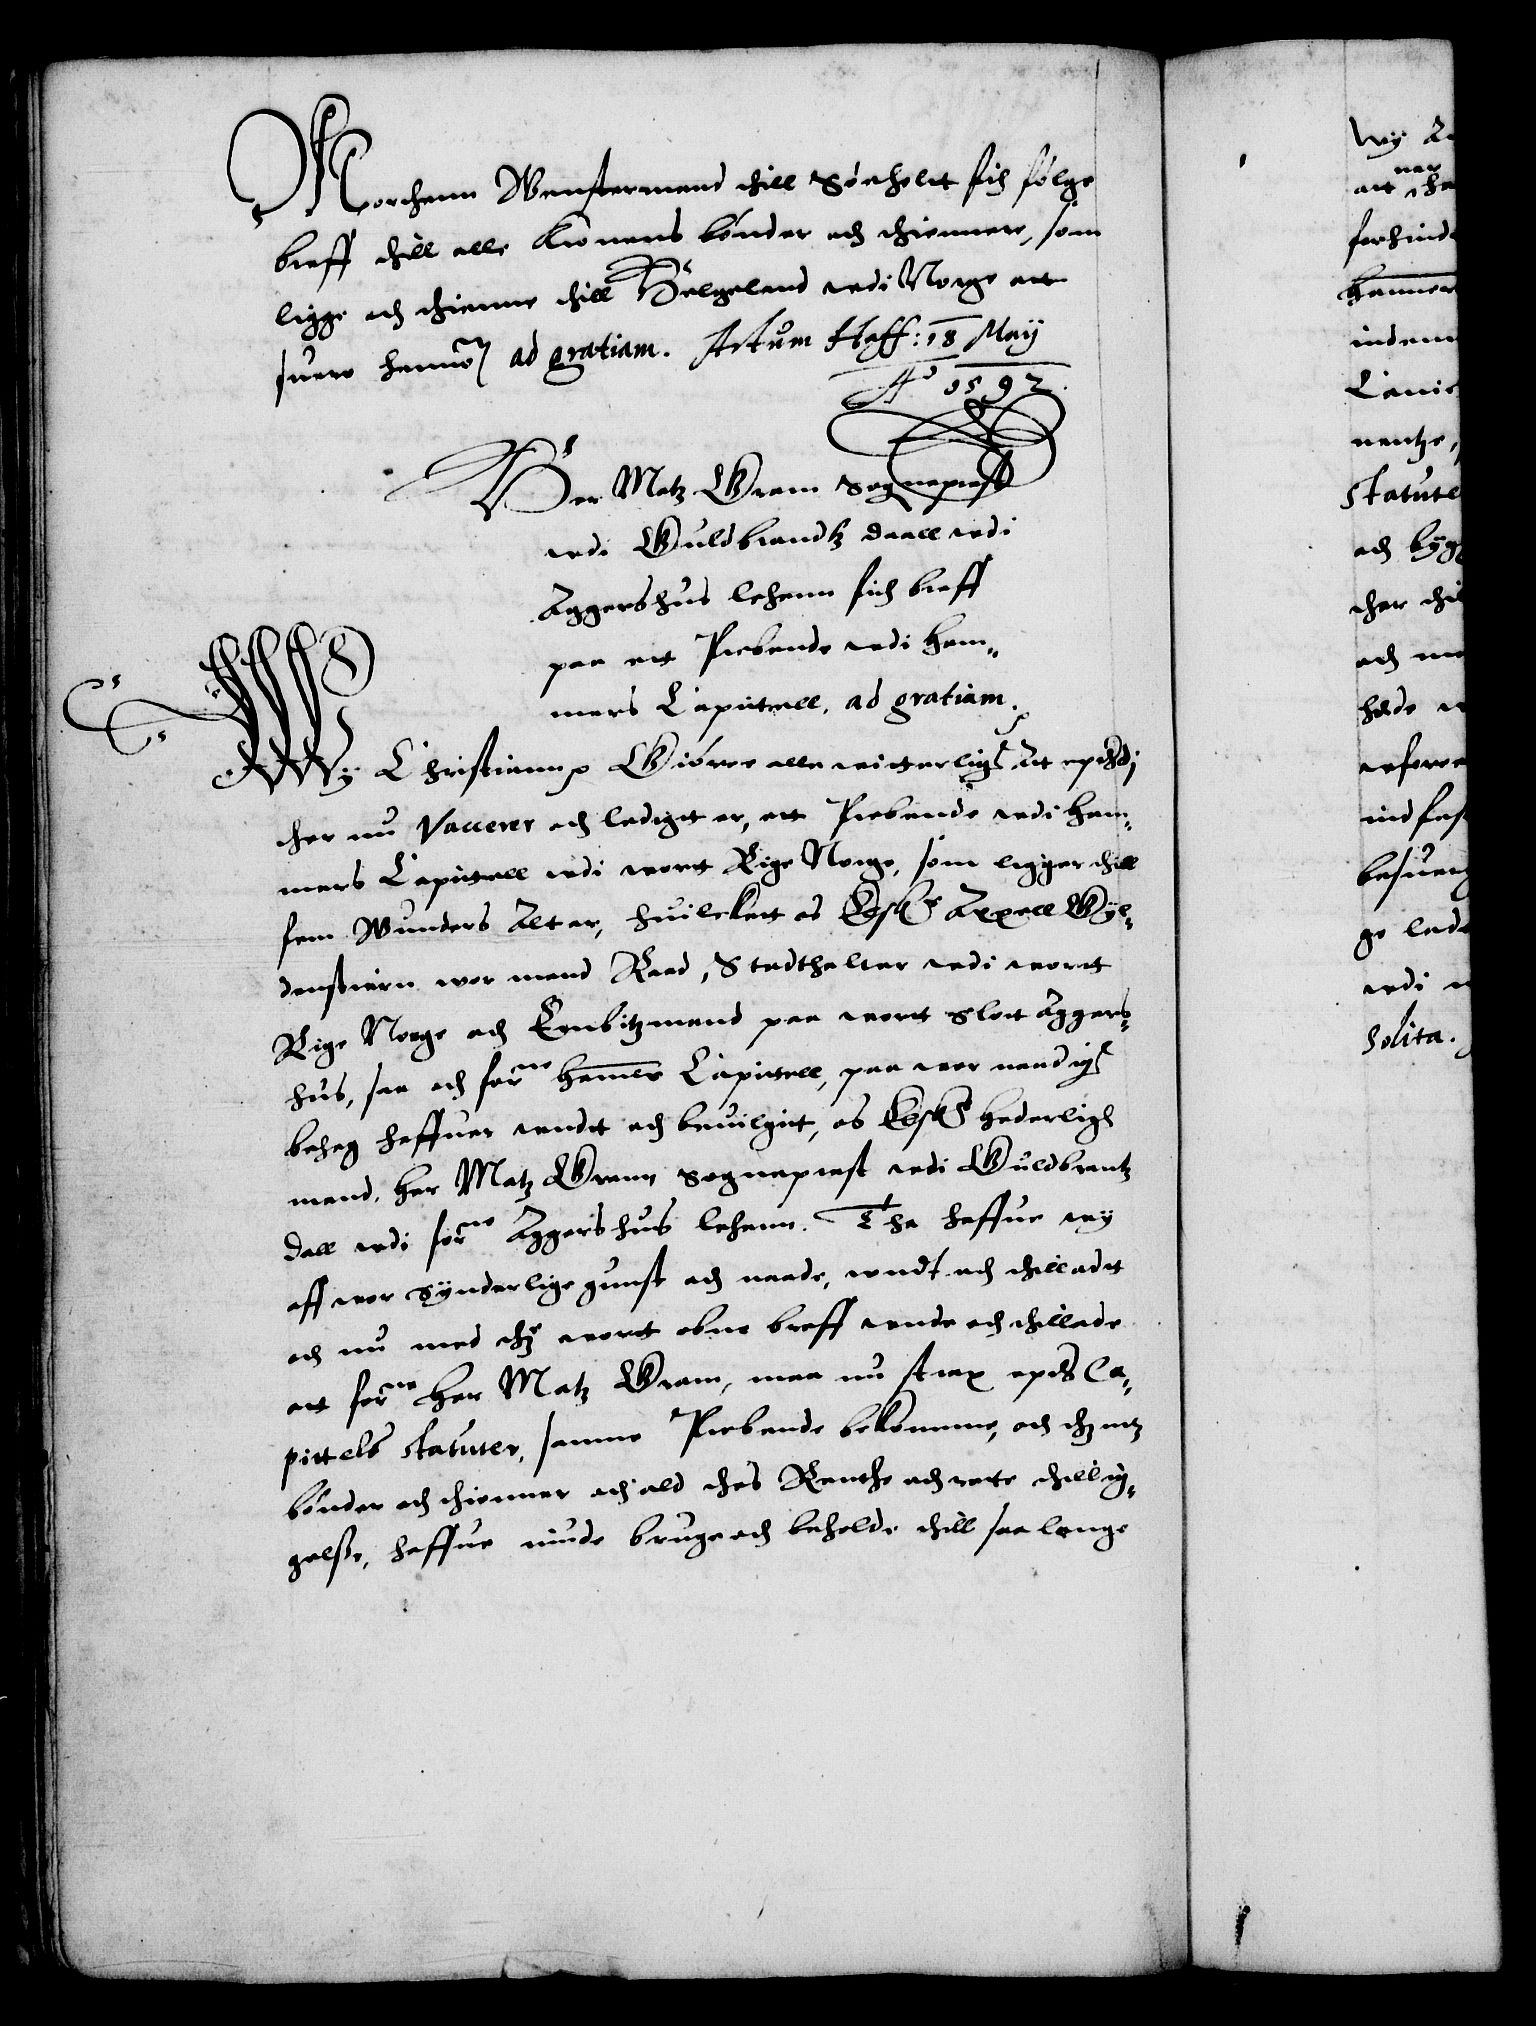 Morthenn Wenstermand thill Sóeholtt fich fólge
breff thill alle Kronens bónder och thiennere, som
ligge och thienne thill Helgeland udi Norge att
suare hannom ad gratiam. Actum Haff: 18 May
Aº 1592.
Her Matz Gram Sogneprest
udi Guldbrandtz daall udi
Aggershus lehenn fich breff
paa ett Prebende udi Ham¬
mers Capittell, ad gratiam.
Wy Christiann Gióre alle witterligt Att epther
ther nu Vacerer och ledigtt er, ett Prebende udi Ham¬
mers Capittell udi wortt Rige Norge, som ligger thill
fem Wunders Alter, huilckett os Elsche Axxell Gyl¬
denstiern wor mand Raad, Stadtholter udi wortt
Rige Norge och Embitzmand paa wortt Slott Aggers¬
hus, saa och forne Hamers Capittell, paa wor naadigst
behag haffuer undt och beuilgitt, os Elsche Hederlig
mand, Her Matz Gram Sogneprest udi Guldbrantz
dall udi forne Aggershus lehenn. Tha haffue wy
aff wor Synderlige gunst och naade, undt och thilladt
och nu med thette wortt obne breff unde och thillade
att forne Her Matz Gram, maa nu strax epther Ca¬
pittels statuter, samme Prebende bekomme, och thets
bónder och thienner och ald thes Renthe och rette thilly¬
gelse, haffue niude bruge och beholde thill saa lenge
Wy
att
forhind
Hammer
indem
Canic
nentze,
Statute
och byg
ther thi
och me
holde
uforre
indfest
besuerg
ge lade
udi
Solita.